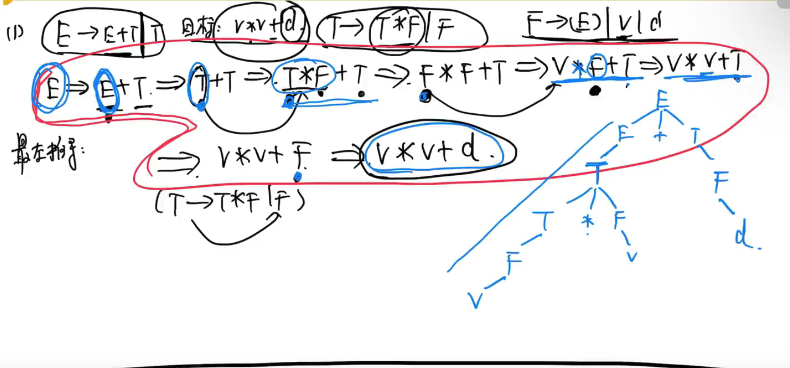 (1) E→E+T|T 目标: v*v+d. T→T*F|F F→(E)|v|d
E⇒E+T⇒T+T⇒T*F+T⇒F*F+T⇒V*F+T⇒V*v+T
最左推导:
⇒ v*v+F ⇒ v*v+d.
(T→T*F|F)
E
E + T
T F
T * F d.
F v
v